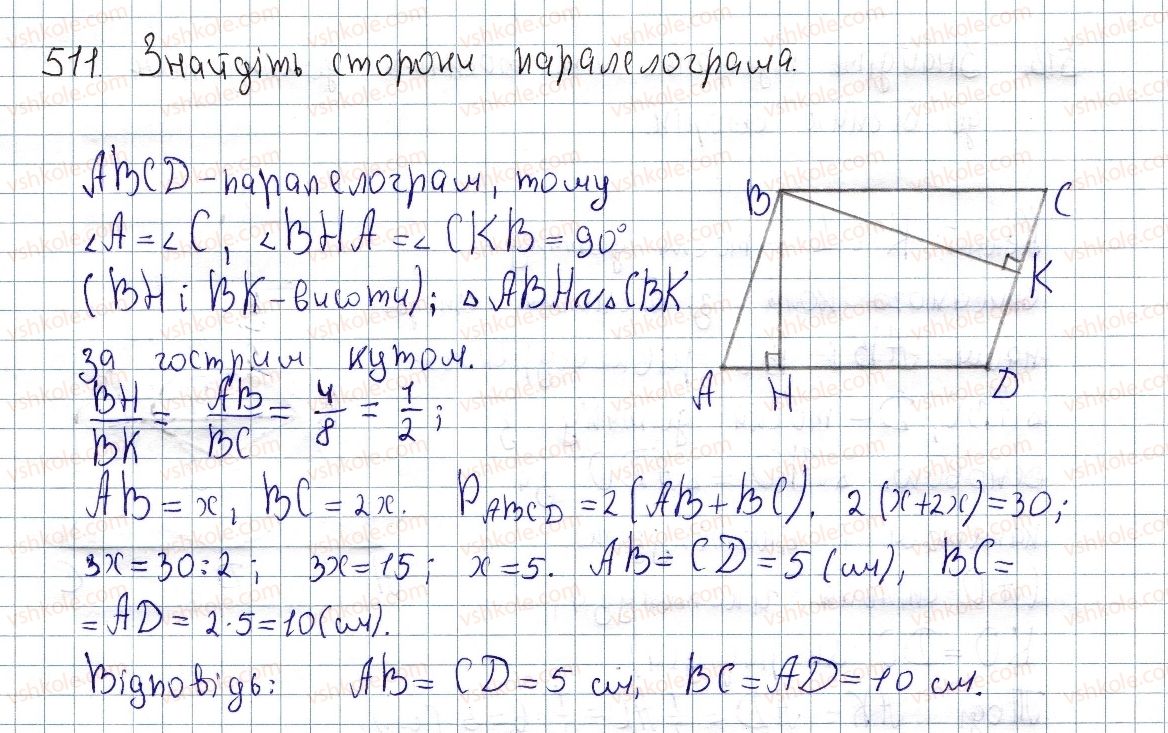 511. Знайдіть сторони паралелограма.
ABCD - паралелограм, тому
∠A = ∠C, ∠BHA = ∠CKB = 90°
(BH і BK - висоти); △ABH ~ △CBK
за гострим кутом.
BH/BK = AB/BC = 4/8 = 1/2;
AB = x, BC = 2x. P ABCD = 2(AB + BC). 2(x+2x) = 30;
3x = 30:2; 3x = 15; x = 5. AB = CD = 5 (см), BC =
= AD = 2·5 = 10 (см).
Відповідь: AB = CD = 5 см, BC = AD = 10 см.
B
C
K
A
H
D
vshkole.com